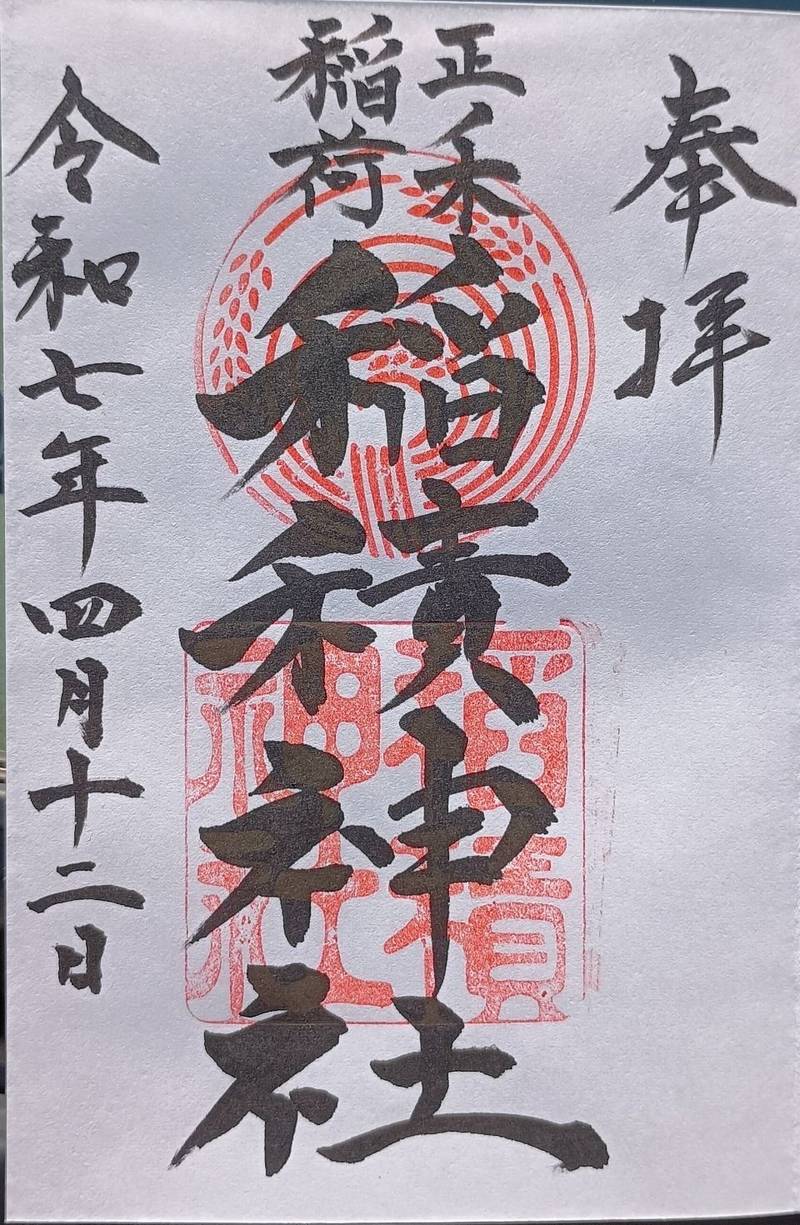 奉拝
正ノ木
稲荷
稲積神社
稲積
神社
令和七年四月十二日